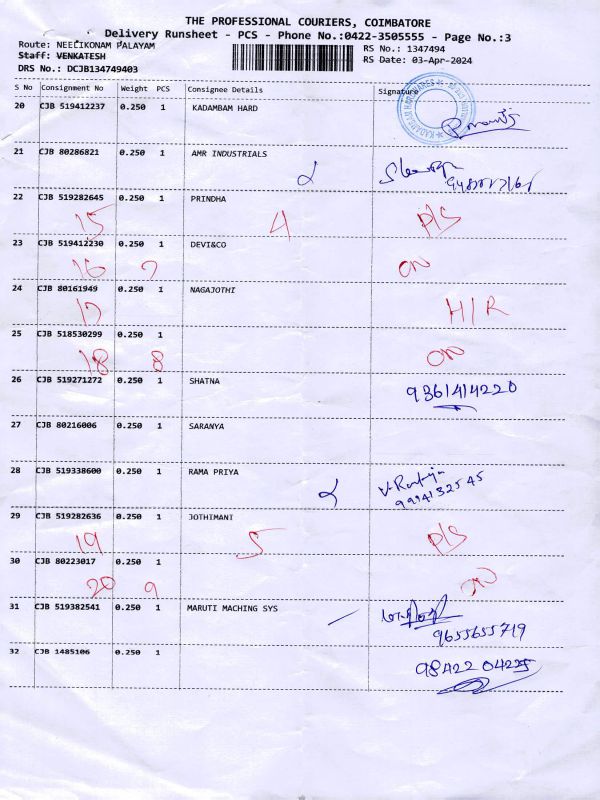 THE PROFESSIONAL COURIERS, COIMBATORE
Delivery Runsheet - PCS - Phone No.:0422-3505555 - Page No.:3
Route: NEELIKONAM PALAYAM RS No.: 1347494
Staff: VENKATESH RS Date: 03-Apr-2024
DRS No.: DCJB134749403
S No Consignment No Weight PCS Consignee Details Signature
20 CJB 519412237 0.250 1 KADAMBAM HARD
21 CJB 80286821 0.250 1 AMR INDUSTRIALS
22 CJB 519282645 0.250 1 PRINDHA
15 4 P/S
23 CJB 519412230 0.250 1 DEVI&CO
16 7 ON
24 CJB 80161949 0.250 1 NAGAJOTHI
17 H/R
25 CJB 518530299 0.250 1
18 8 ON
26 CJB 519271272 0.250 1 SHATNA 9361414220
27 CJB 80216006 0.250 1 SARANYA
28 CJB 519338600 0.250 1 RAMA PRIYA
9994132545
29 CJB 519282636 0.250 1 JOTHIMANI
19 5 P/S
30 CJB 80223017 0.250 1
20 9 ON
31 CJB 519382541 0.250 1 MARUTI MACHING SYS
9655655719
32 CJB 1485106 0.250 1 98422 04225